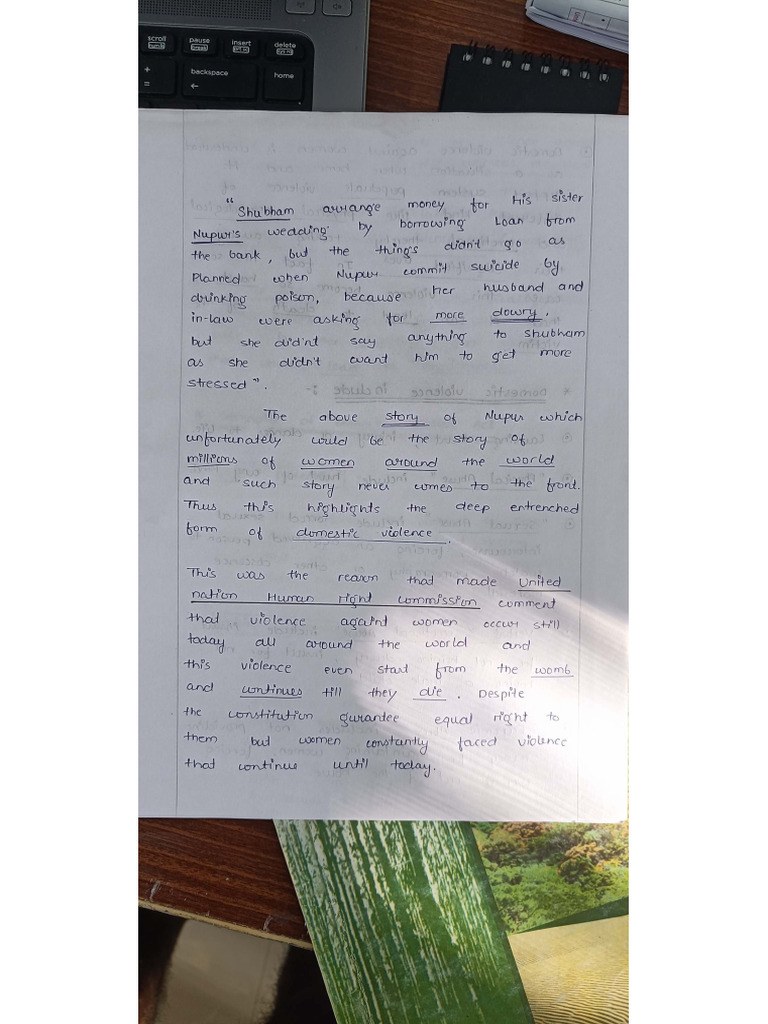 scroll
pause
insert
delete
backspace
home
" Shubham arrange money for His sister
Nupur's wedding by borrowing Loan from
the bank, but the things didn't go as
Planned when Nupur commit suicide by
drinking poison, because her husband and
in-law were asking for more dowry,
but she did'nt say anything to Shubham
as she didn't want him to get more
stressed".
The above story of Nupur which
unfortunately could be the story of
millions of women around the world
and such story never comes to the front.
Thus this highlights the deep entrenched
form of domestic violence.
This was the reason that made United
nation Human right Commission comment
that violence againt women occur still
today all around the world and
this violence even start from the womb
and continues till they die. Despite
the constitution gurantee equal right to
them but women constantly faced violence
that continue until today.